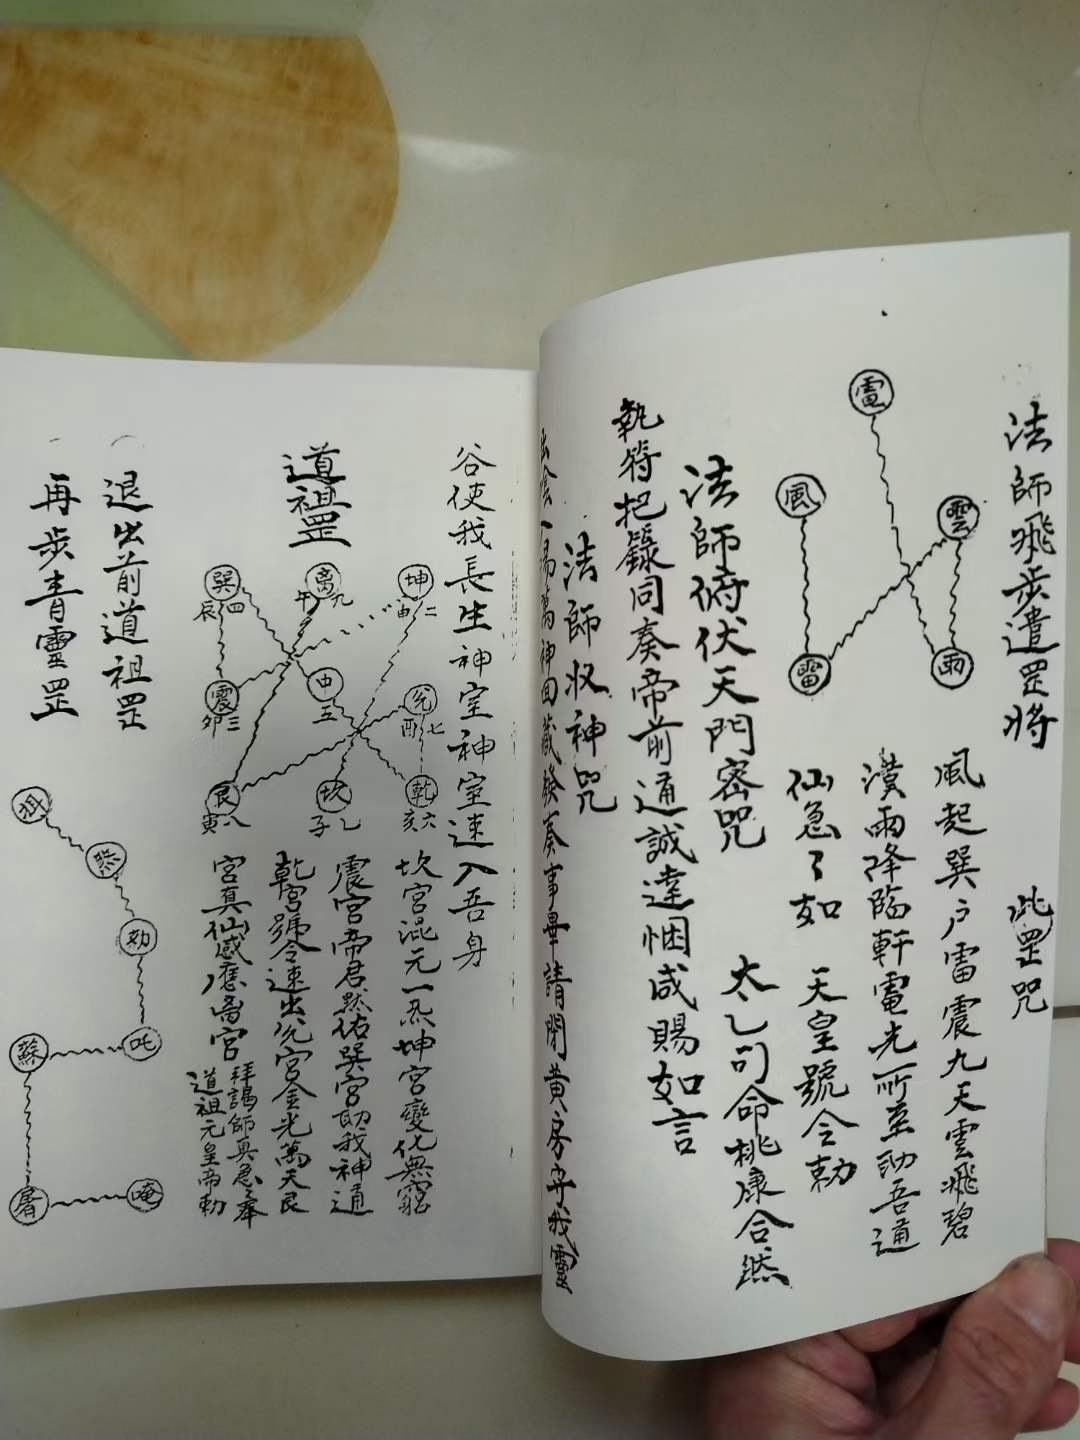 法師飛步遣罡將
此罡咒
風起巽户雷震九天雲飛碧
漢雨降臨軒電光所至助吾通
仙急々如
天皇號令勅
電
風
雲
雷
雨
法師俯伏天門密咒
太乙司命桃康合然
執符把籙同奏帝前通誠達悃咸賜如言
法師收神咒
萬神回藏發奏事畢請閉黄房守我靈
谷使我長生神室神室速入吾身
道祖罡
巽四辰
離九午
坤二申
震三卯
中五
兌七酉
艮八寅
坎乙子
乾六亥
坎宮混元一炁坤宮變化無窮
震宮帝君然佑巽宮助我神通
乾宮號令速出兌宮金光萬天艮
宮真仙感應离宮
拜謁師真急奉
道祖元皇帝勅
退出前道祖罡
再步青靈罡
勅
吒
蘇
唵